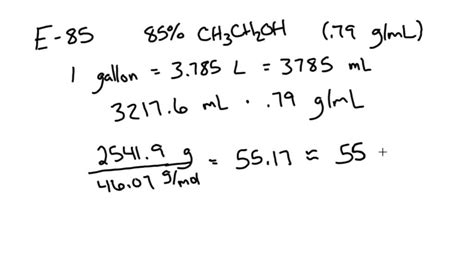 E-85 85% CH3CH2OH (.79 g/mL)
1 gallon = 3.785 L = 3785 mL
3217.6 mL · .79 g/mL
2541.9 g
46.07 g/mol
= 55.17 ≈ 55